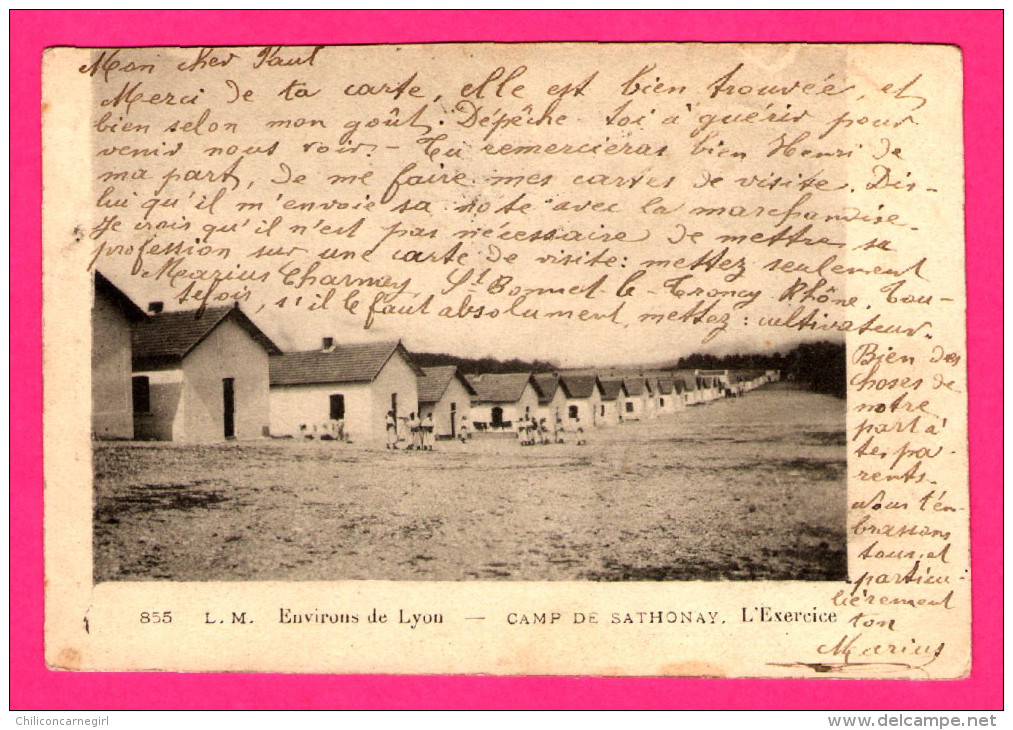 Mon cher Paul
Merci de ta carte, elle est bien trouvée, et
bien selon mon goût. Dépêche-toi à guérir pour
venir nous voir. - Tu remercieras bien Henri de
ma part, de me faire mes cartes de visite. Dis-
lui qu'il m'envoie sa note avec la marchandise.
Je crois qu'il n'est pas nécessaire de mettre sa
profession sur une carte de visite: mettez seulement
Marius Charmay, St Bonnet-le-Troncy Rhône. Tou-
tefois, s'il le faut absolument, mettez: cultivateur.
Bien des
choses de
notre
part à
tes pa-
rents.
Nous t'em-
brassons
tous et
particu-
lièrement
ton
Marius
855 L. M. Environs de Lyon — CAMP DE SATHONAY. L'Exercice
Chiliconcarnegirl
www.delcampe.net